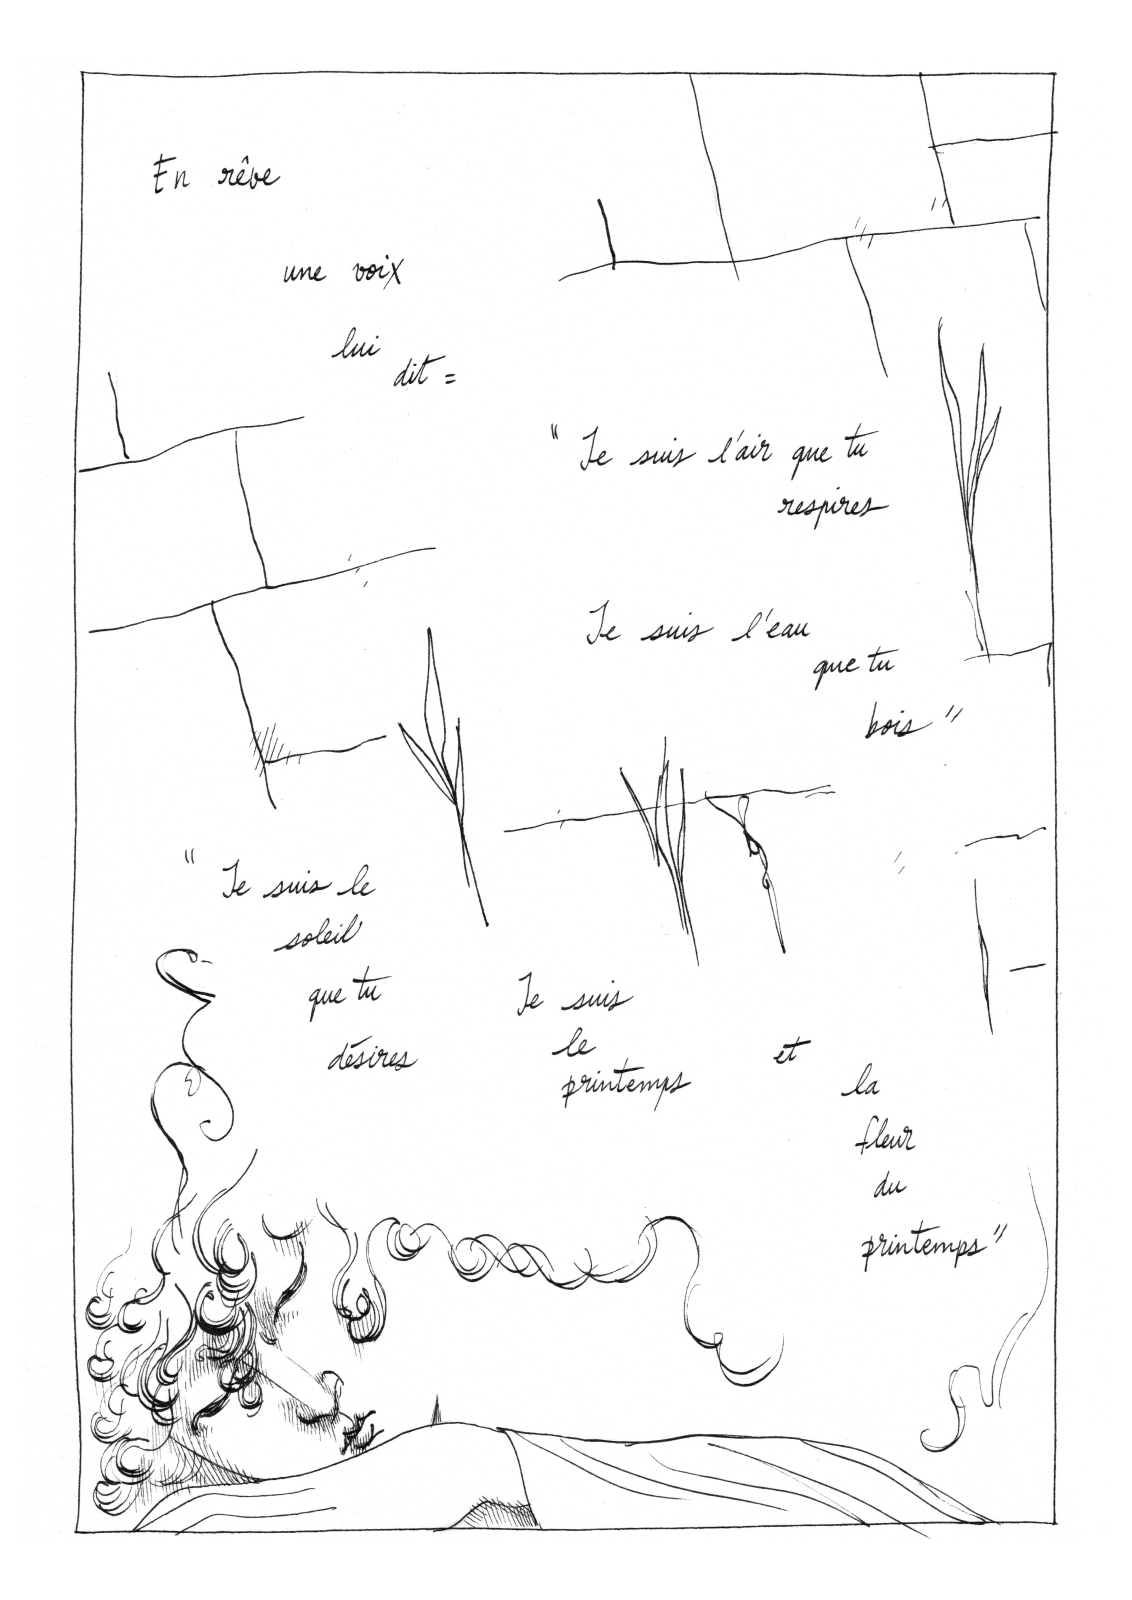 En rêve
une voix
lui
dit =
" Je suis l'air que tu
respires
Je suis l'eau
que tu
bois "
" Je suis le
soleil
que tu
désires
Je suis
le
printemps
et
la
fleur
du
printemps "